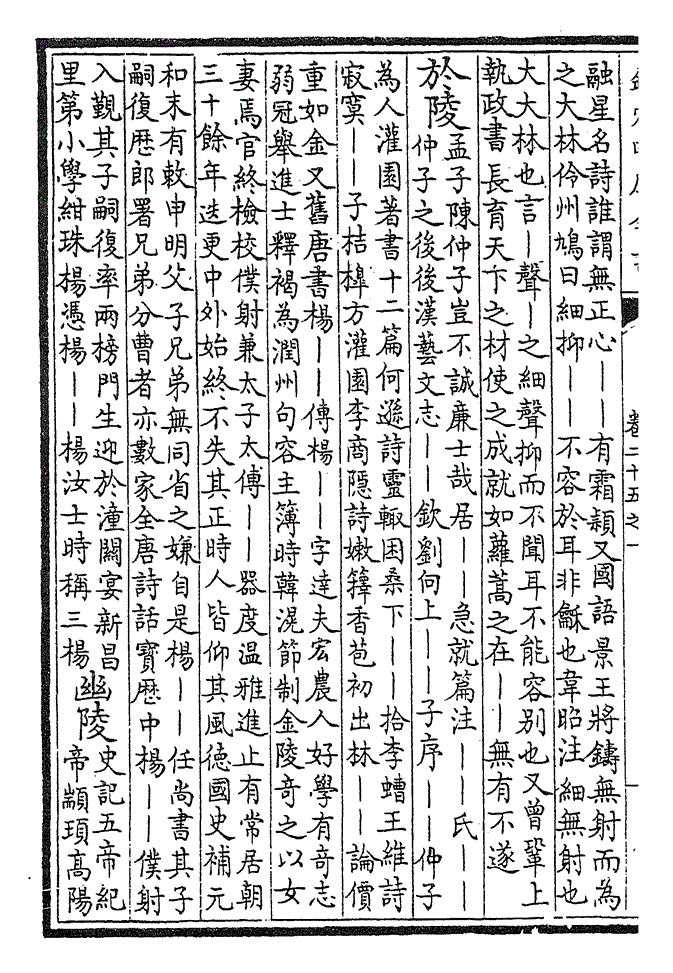 卷二十五之一
融星名詩誰謂無正心——有霜顈又國語景王將鑄無射而為
之大林伶州鳩曰細抑——不容於耳非龢也韋昭注細無射也
大大林也言—聲—之細聲抑而不聞耳不能容别也又曾鞏上
執政書長育天下之材使之成就如蘿蒿之在——無有不遂
於陵
孟子陳仲子豈不誠廉士哉居——急就篇注——氏——
仲子之後後漢藝文志——欽劉向上——子序——仲子
為人灌園著書十二篇何遜詩靈輒困桑下——拾李螬王維詩
寂寞——子桔槹方灌園李商隱詩嫩籜香苞初出林——論價
重如金又舊唐書楊——傳楊——字達夫宏農人好學有奇志
弱冠舉進士釋褐為潤州句容主簿時韓滉節制金陵奇之以女
妻焉官終檢校僕射兼太子太傅——器度温雅進止有常居朝
三十餘年迭更中外始終不失其正時人皆仰其風德國史補元
和末有敕申明父子兄弟無同省之嫌自是楊——任尚書其子
嗣復歴郎署兄弟分曹者亦數家全唐詩話寳歴中楊——僕射
入覲其子嗣復率兩榜門生迎於潼關宴新昌
里第小學紺珠楊憑楊——楊汝士時稱三楊
幽陵
史記五帝紀
帝顓頊高陽